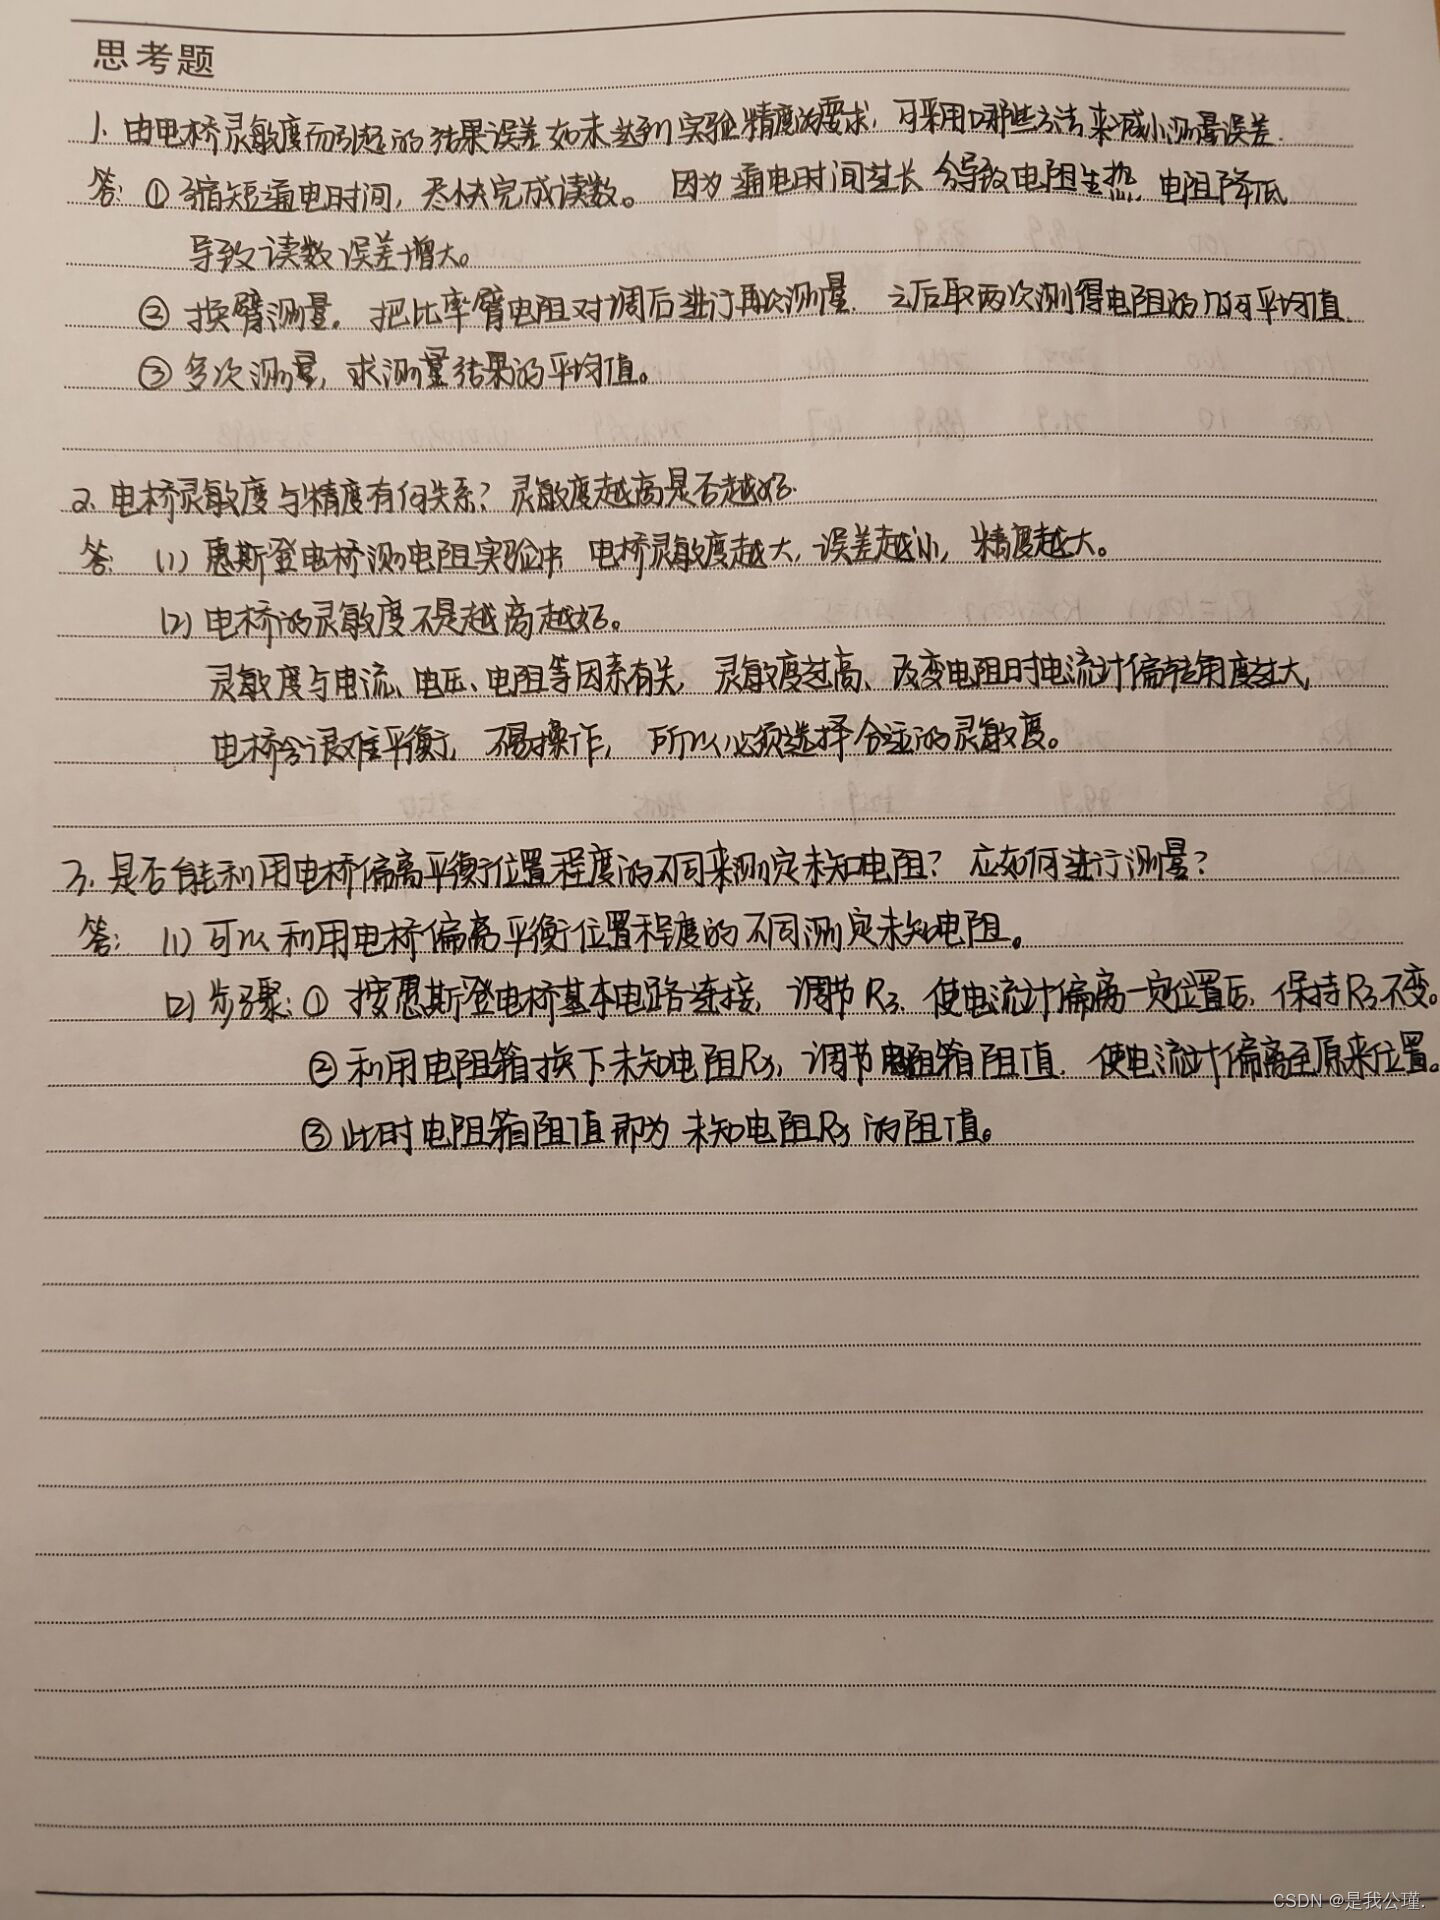 思考题
1. 由电桥灵敏度而引起的结果误差如未达到实验精度的要求，可采用哪些方法来减小测量误差.
答：① 缩短通电时间，尽快完成读数。因为通电时间过长会导致电阻生热，电阻降低，
导致读数误差增大。
② 换臂测量。把比率臂电阻对调后进行再次测量. 之后取两次测得电阻的几何平均值.
③ 多次测量，求测量结果的平均值。
2. 电桥灵敏度与精度有何关系？灵敏度越高是否越好.
答：(1) 惠斯登电桥测电阻实验中 电桥灵敏度越大，误差越小，精度越大。
(2) 电桥的灵敏度不是越高越好。
灵敏度与电流、电压、电阻等因素有关，灵敏度过高、改变电阻时电流计偏转角度过大，
电桥会很难平衡，不易操作，所以必须选择合适的灵敏度。
3. 是否能利用电桥偏离平衡位置程度的不同来测定未知电阻？应如何进行测量？
答：(1) 可以利用电桥偏离平衡位置程度的不同测定未知电阻。
(2) 步骤：① 按惠斯登电桥基本电路连接，调节R3. 使电流计偏离一定位置后，保持R3不变。
② 利用电阻箱换下未知电阻Rx，调节电阻箱阻值. 使电流计偏离至原来位置。
③ 此时电阻箱阻值即为未知电阻Rx的阻值。
CSDN @是我公瑾.